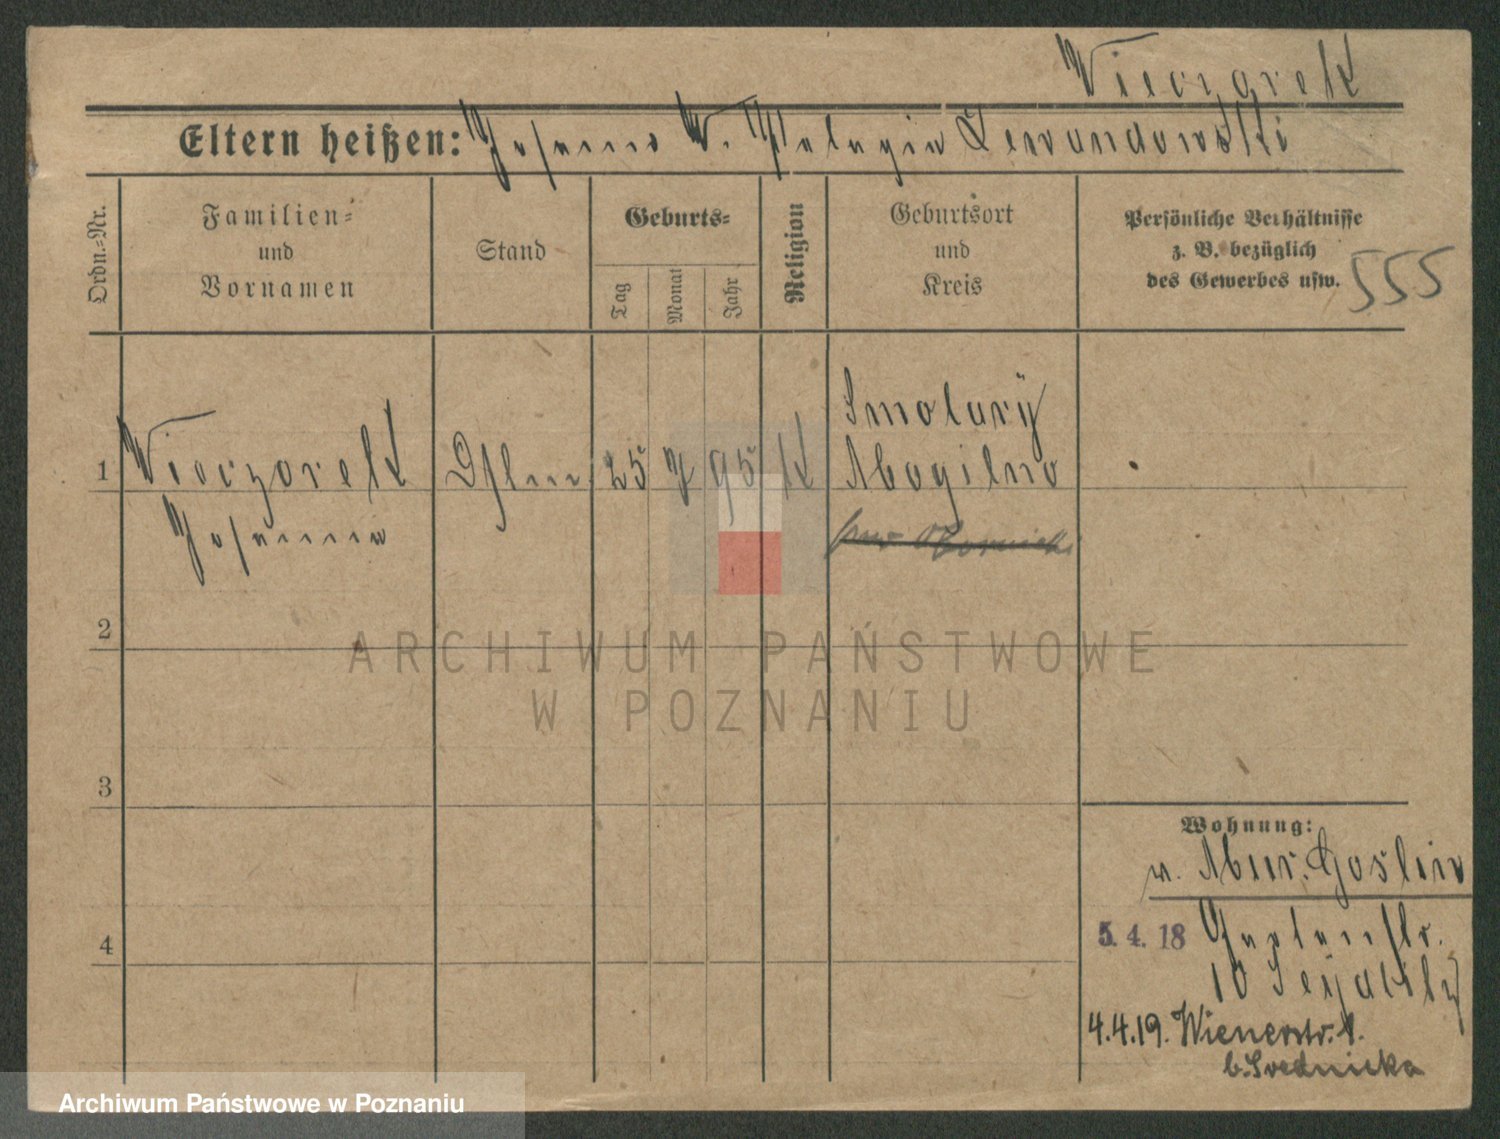 Wieczorek
Eltern heißen: Johann W. Pelagia Lewandowski
Ordn.-Nr.
Familien-
und
Vornamen
Stand
Geburts-
Tag
Monat
Jahr
Religion
Geburtsort
und
Kreis
Persönliche Verhältnisse
z. B. bezüglich
des Gewerbes usw.
555
Smolary
1 Wieczorek 25 7 95 K Mogilno
Johanna
2
ARCHIWUM PAŃSTWOWE
W POZNANIU
3
Wohnung:
v. Mur. Goslin
5. 4. 18 Gartenstr.
4 10
4.4.19. Wienerstr. 1.
b. Srednicka
Archiwum Państwowe w Poznaniu